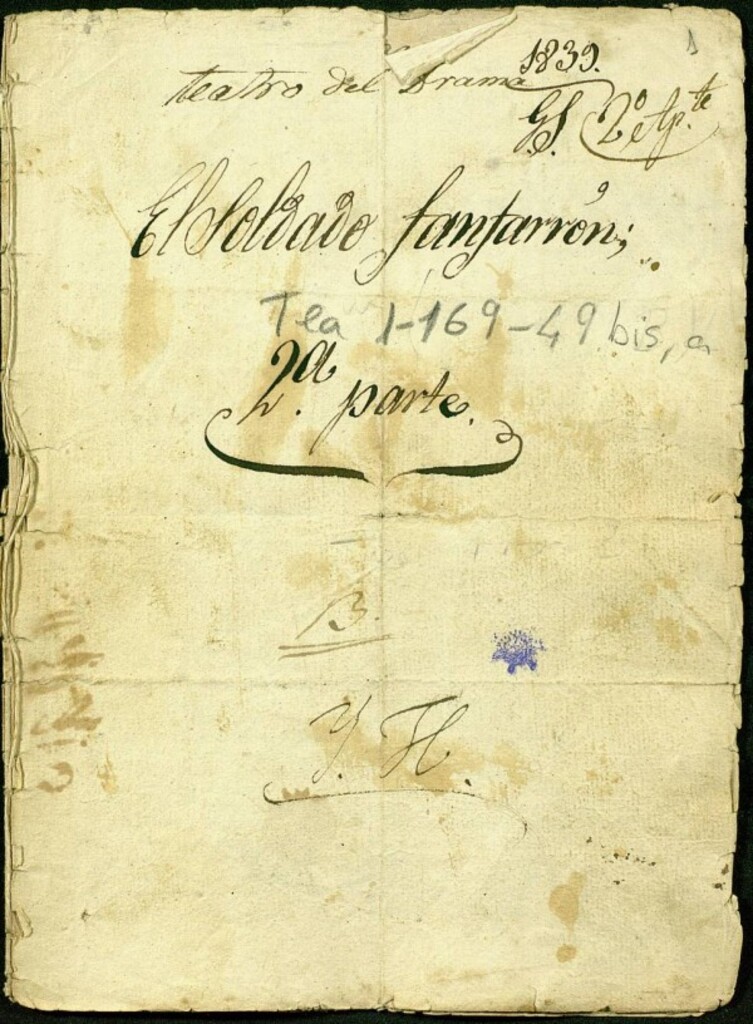 1
teatro del Drama 1839.
G.S. 2º Ap.te
El Soldado fanfarrón;
Tea 1-169-49 bis, a
2ª parte.
B.
Y. H.